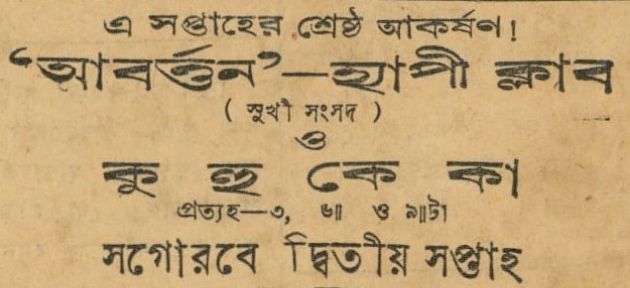 এ সপ্তাহের শ্রেষ্ঠ আকর্ষণ!
‘আবর্ত্তন’—হ্যাপী ক্লাব
( সুখী সংসদ )
ও
কু হু কে কা
প্রত্যহ—৩, ৬॥ ও ৯॥টা
সগৌরবে দ্বিতীয় সপ্তাহ